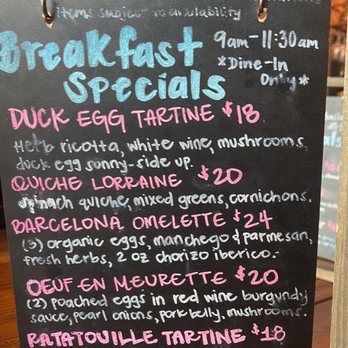 items subject to availability
Breakfast
Specials
9am-11:30am
*Dine-In
Only*
DUCK EGG TARTINE $18
Herb ricotta, white wine, mushrooms.
duck egg sunny-side up.
QUICHE LORRAINE $20
spinach quiche, mixed greens, cornichons.
BARCELONA OMELETTE $24
(3) organic eggs, manchego & parmesan,
fresh herbs, 2 oz chorizo iberico.
OEUF EN MEURETTE $20
(2) poached eggs in red wine burgundy
sauce, pearl onions, pork belly, mushrooms.
RATATOUILLE TARTINE $18